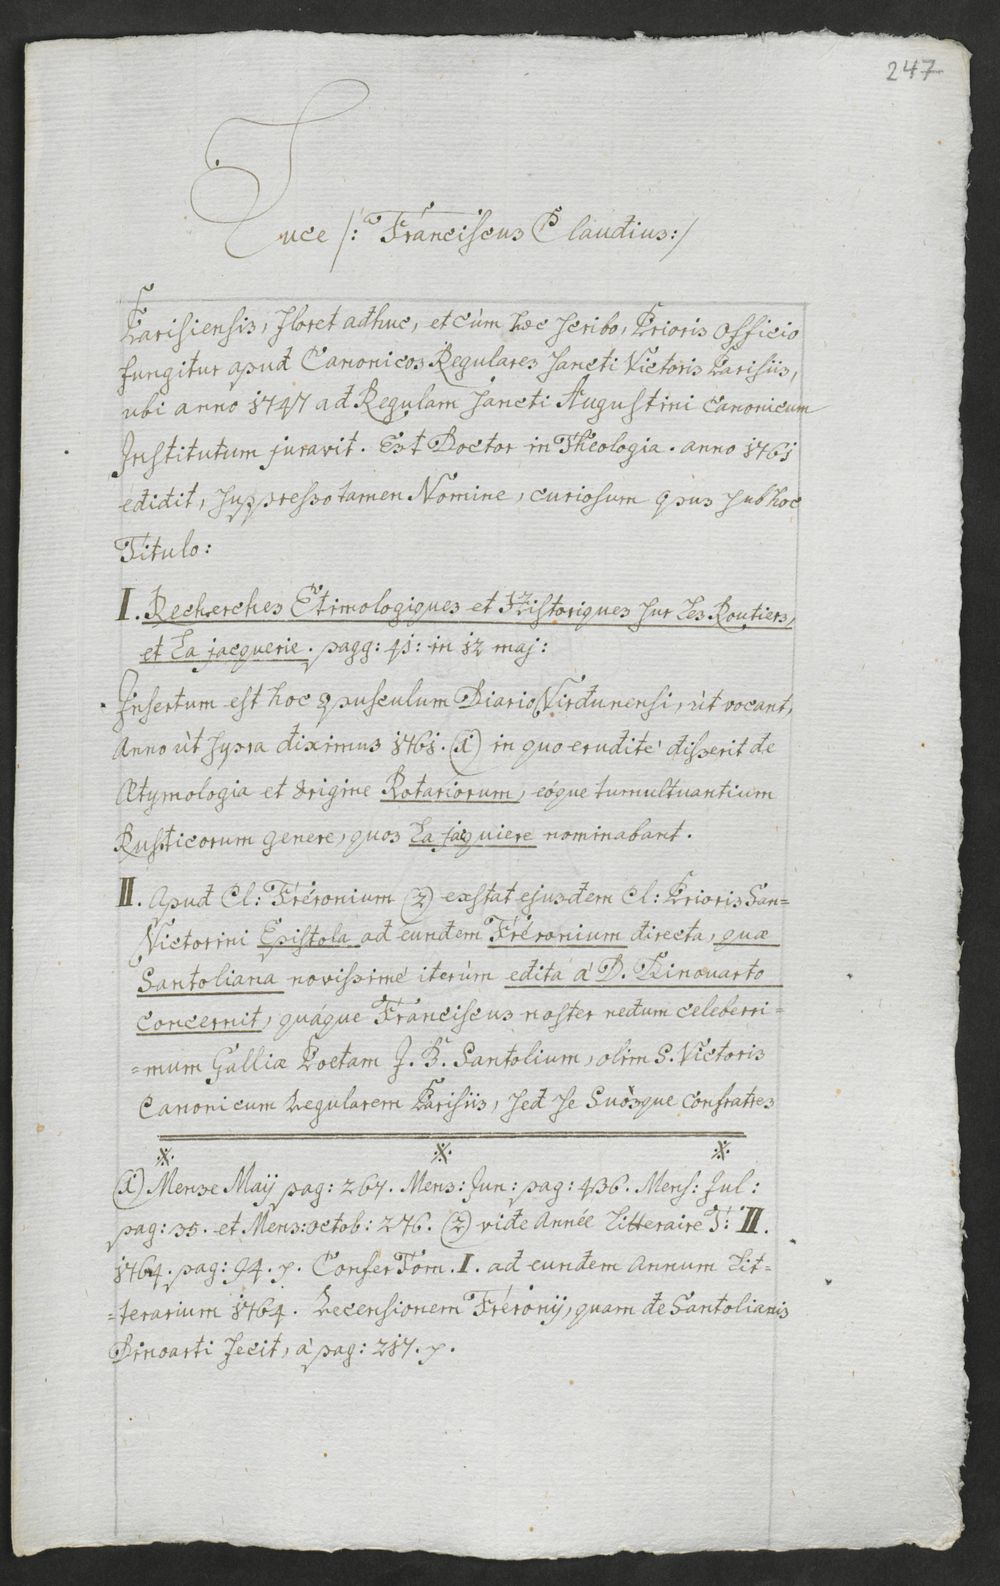 247
Luce /: Franciscus Claudius:/
Parisiensis, floret adhuc, et cùm hæc scribo, Prioris officio
fungitur apud Canonicos Regulares sancti Victoris Parisiis,
ubi anno 1747 ad Regulam sancti Augustini Canonicum
Institutum juravit. Est Doctor in Theologia. anno 1761
edidit, suppresso tamen Nomine, curiosum opus sub hoc
Titulo:
I. Recherches Etimologiques et Historiques sur Les Routiers,
et La jacquerie. pagg: 41: in 12 maj:
Insertum est hoc opusculum Diario Virdunensi, ùt vocant,
Anno ùt supra diximus 1761. (1) in quo erudité disserit de
Ætymologia et origine Rotariorum, eóque tumultuantium
Rusticorum genere, quos La jaquiere nominabant.
II. Apud Cl: Fréronium (2) exstat ejusdem Cl: Prioris San=
Victorini Epistola ad eundem Fréronium directa, quæ
Santoliana novissimé iterùm edita á D. Dinouarto
concernit, quáque Franciscus noster nedum celeberri=
=mum Galliæ Poetam J. B. Santolium, olim S. Victoris
Canonicum Regularem Parisiis, sed se suosque Confratres
(1) Mense Maij pag: 267. Mens: Jun: pag: 436. Mens: Jul:
pag: 35. et Mens: octob: 276. (2) vide Année Litteraire T: II.
1764. pag: 94. 7. Confer Tom. I. ad eundem Annum Lit=
=terarium 1764. Recensionem Fréronij, quam de Santolianis
Dinoarti fecit, à pag: 217. 7.